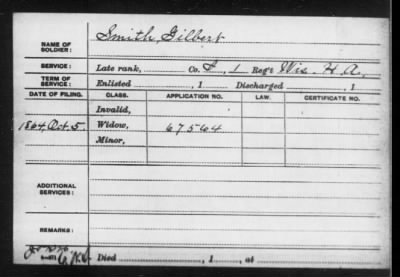 NAME OF SOLDIER: Smith, Gilbert
SERVICE: Late rank, Co. I, 1 Reg't Wis. H. A.,
TERM OF SERVICE: Enlisted , 1 Discharged , 1
DATE OF FILING. CLASS. APPLICATION NO. LAW. CERTIFICATE NO.
Invalid,
1864, Oct. 5. Widow, 67564
Minor,
ADDITIONAL SERVICES:
REMARKS:
Died , 1 , at